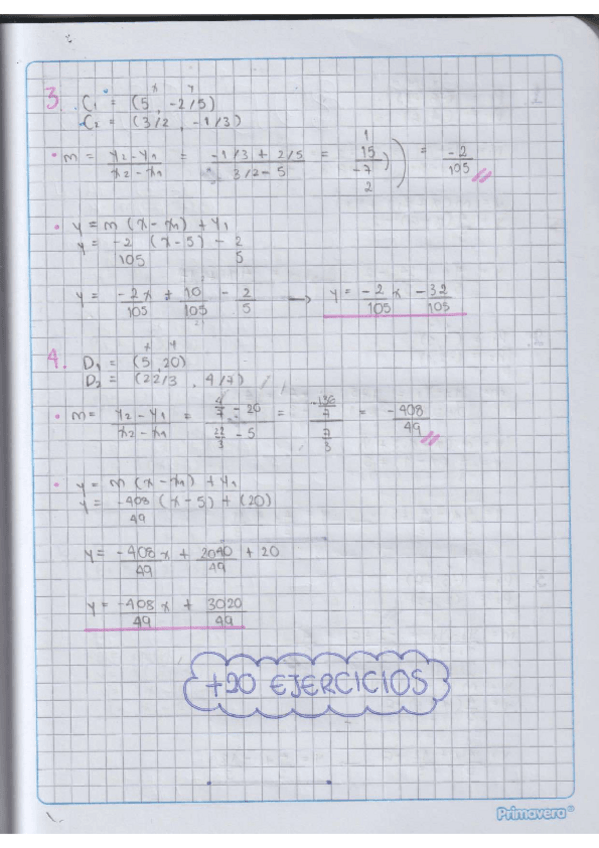 x y
3. C₁ = (5, -2/5)
C₂ = (3/2, -1/3)
• m = y₂-y₁ / x₂-x₁ = -1/3 + 2/5 / 3/2 - 5 = 1/15 / -7/2 = -2/105
• y = m (x-x₁) + y₁
y = -2/105 (x-5) - 2/5
y = -2x/105 + 10/105 - 2/5 → y = -2/105 x -32/105
x y
4. D₁ = (5, 20)
D₂ = (22/3, 4/7)
• m = y₂-y₁ / x₂-x₁ = 4/7 - 20 / 22/3 - 5 = -136/7 / 7/3 = -408/49
• y = m (x-x₁) + y₁
y = -408/49 (x-5) + (20)
y = -408/49 x + 2040/49 + 20
y = -408/49 x + 3020/49
+20 EJERCICIOS
Primavera